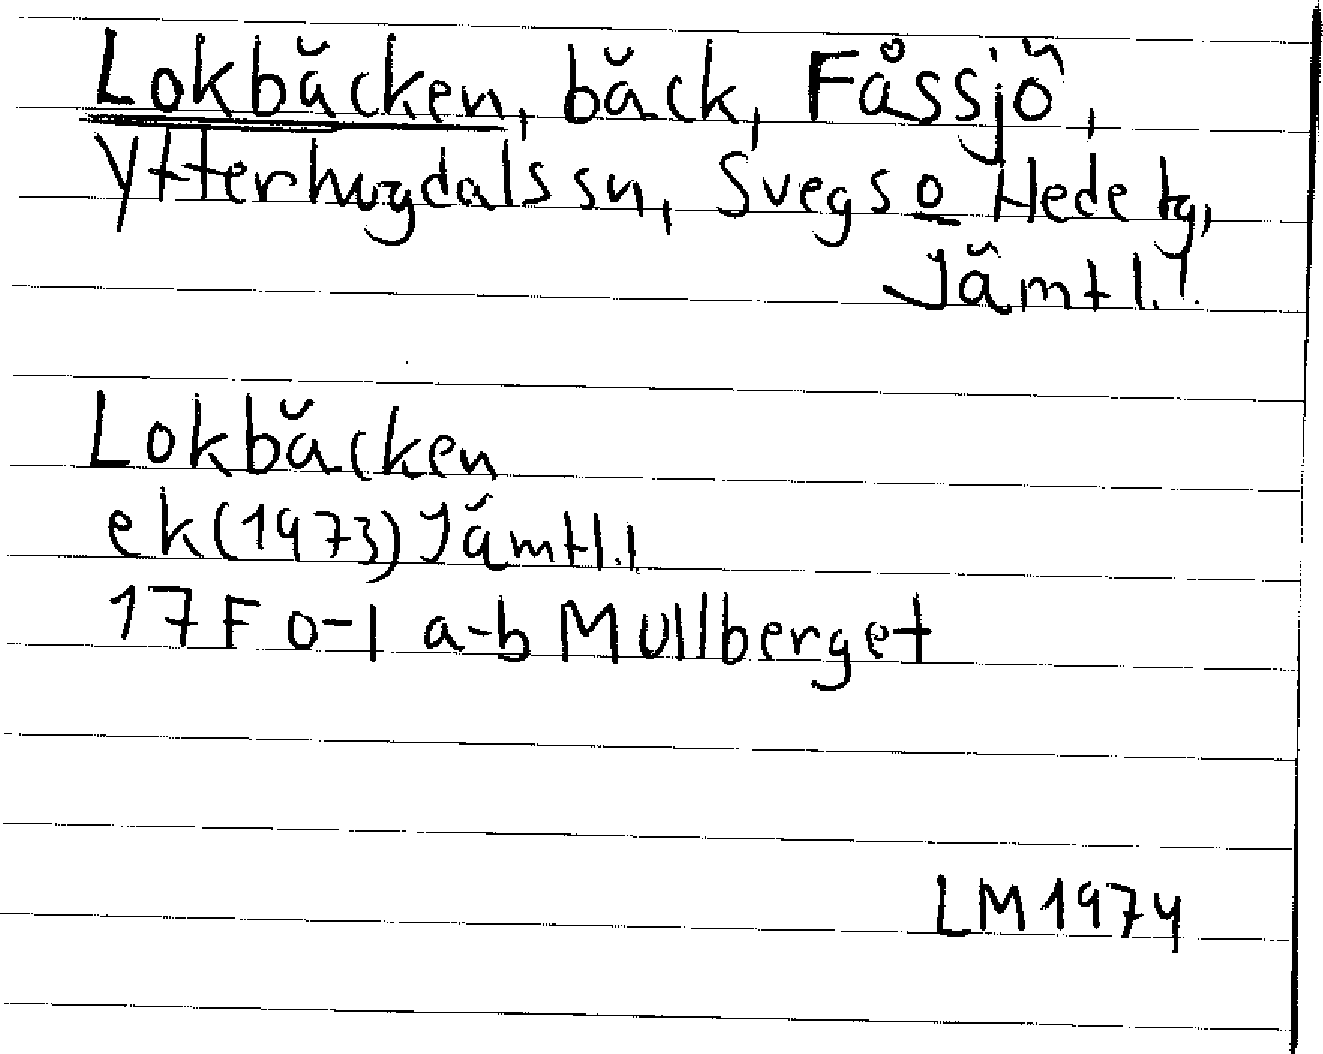 Lokbäcken, bäck, Fåssjö,
Ytterhogdals sn, Svegs o Hede tg,
Jämtl. l.
Lokbäcken
ek(1973) Jämtl. l
17F 0-1 a-b Mullberget
LM 1974